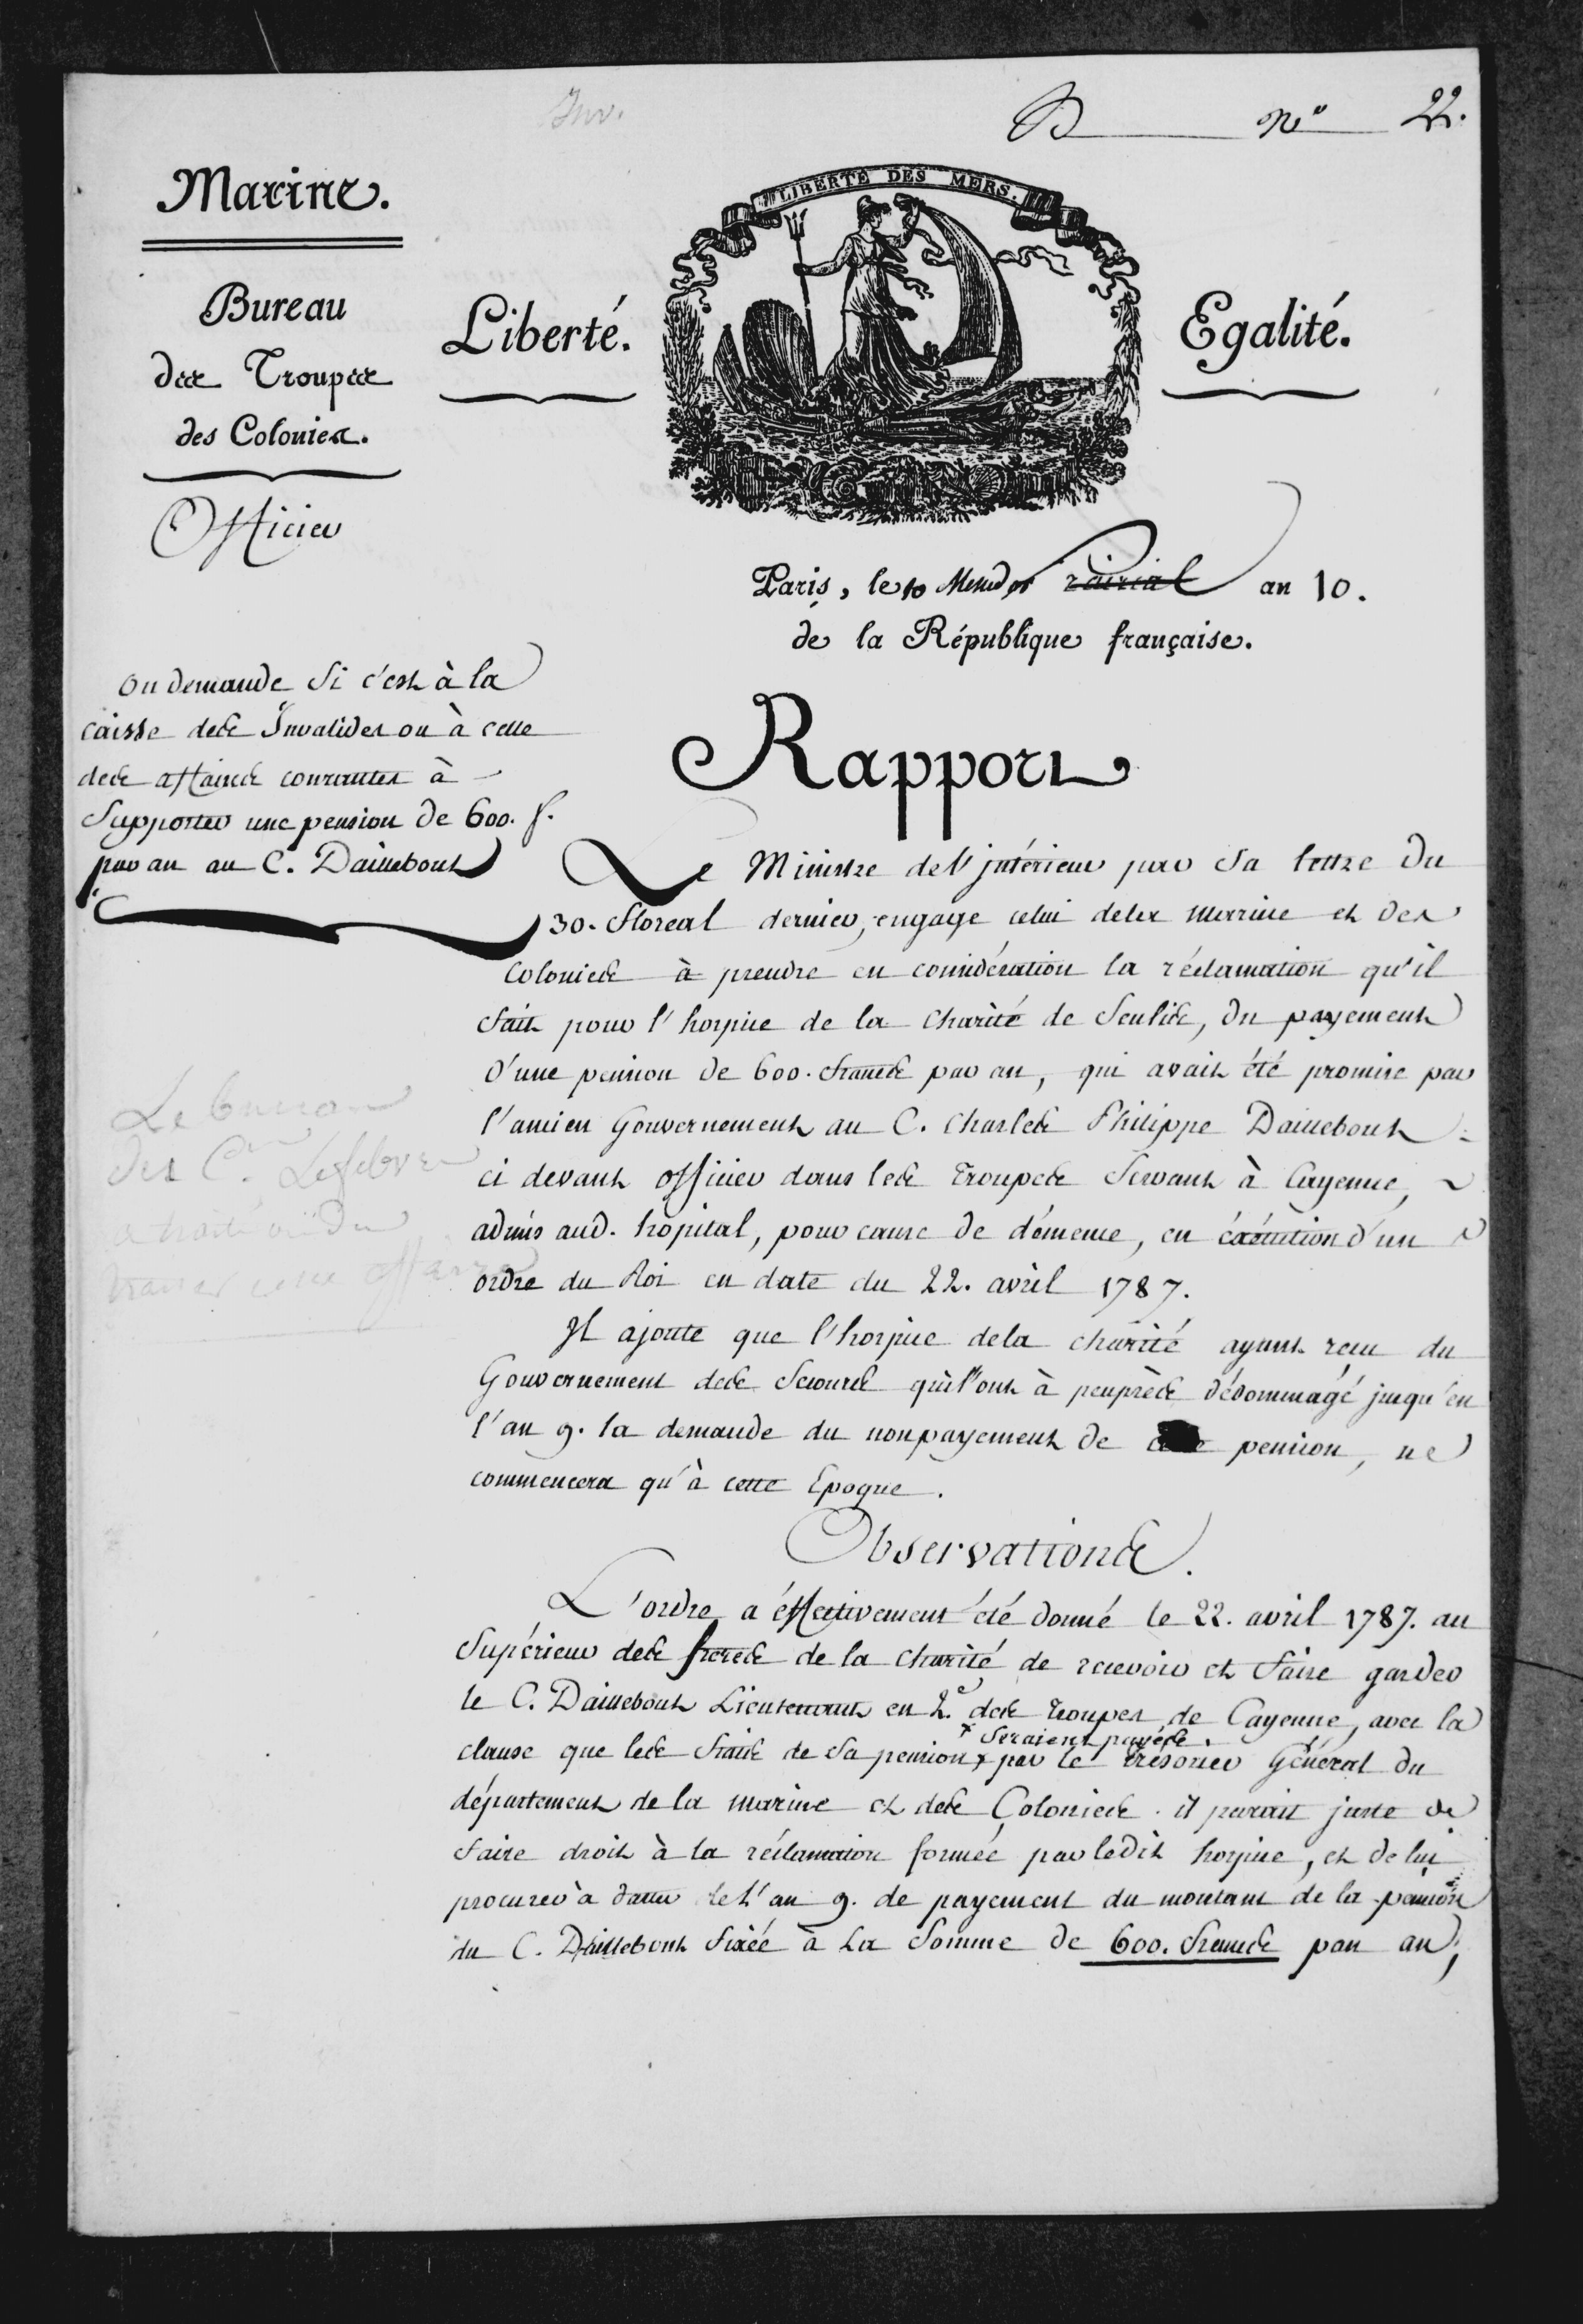 Inv.
B N° 22.
Marine.
Bureau
des Troupes
des Colonies.
Officier
LIBERTÉ DES MERS.
Liberté.
Egalité.
Paris, le 10 Messidor Prairial an 10.
de la République française.
On demande si c'est à la
caisse des Invalides ou à celle
des affaires courrantes à
supporter une pension de 600. f.
par an au C. Daillebout
Rapport
Le Ministre de l'intérieur par sa lettre du
30. floreal dernier, engage celui dela marine et des
Colonies à prendre en considération la réclamation qu'il
fait pour l'hospice de la Charité de Senlis, du payement
d'une pension de 600. francs par an, qui avait été promise par
l'ancien Gouvernement au C. Charles Philippe Daillebout
ci devant officier dans les troupes servant à Cayenne,
admis aud. hopital, pour cause de démence, en éxécution d'un
ordre du Roi en date du 22. avril 1787.
Il ajoute que l'hospice dela charité ayant recu du
Gouvernement des secours qui l'ont à peuprès dédommagé jusqu'en
l'an 9. la demande du nonpayement de cette pension, ne
commencera qu'à cette Epoque.
Le bureau
des C.en Lefebvre
a traité
cette affaire
Observations.
L'ordre a éffectivement été donné le 22. avril 1787. au
Supérieur des freres de la charité de recevoir et faire garder
le C. Daillebout Lieutenant en 2.e des troupes de Cayenne, avec la
x seraient payés
clause que les frais de sa pension x par le trésorier Général du
département de la marine et des Colonies. il parait juste de
faire droit à la réclamation formée par ledit hospice, et de lui
procurer à dater de l'an 9. de payement du montant de la pension
du C. Daillebout fixée à la somme de 600. francs par an,